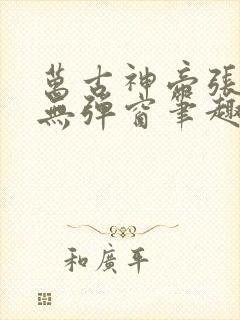 萬古神帝張
無彈窗筆趣
和廣平